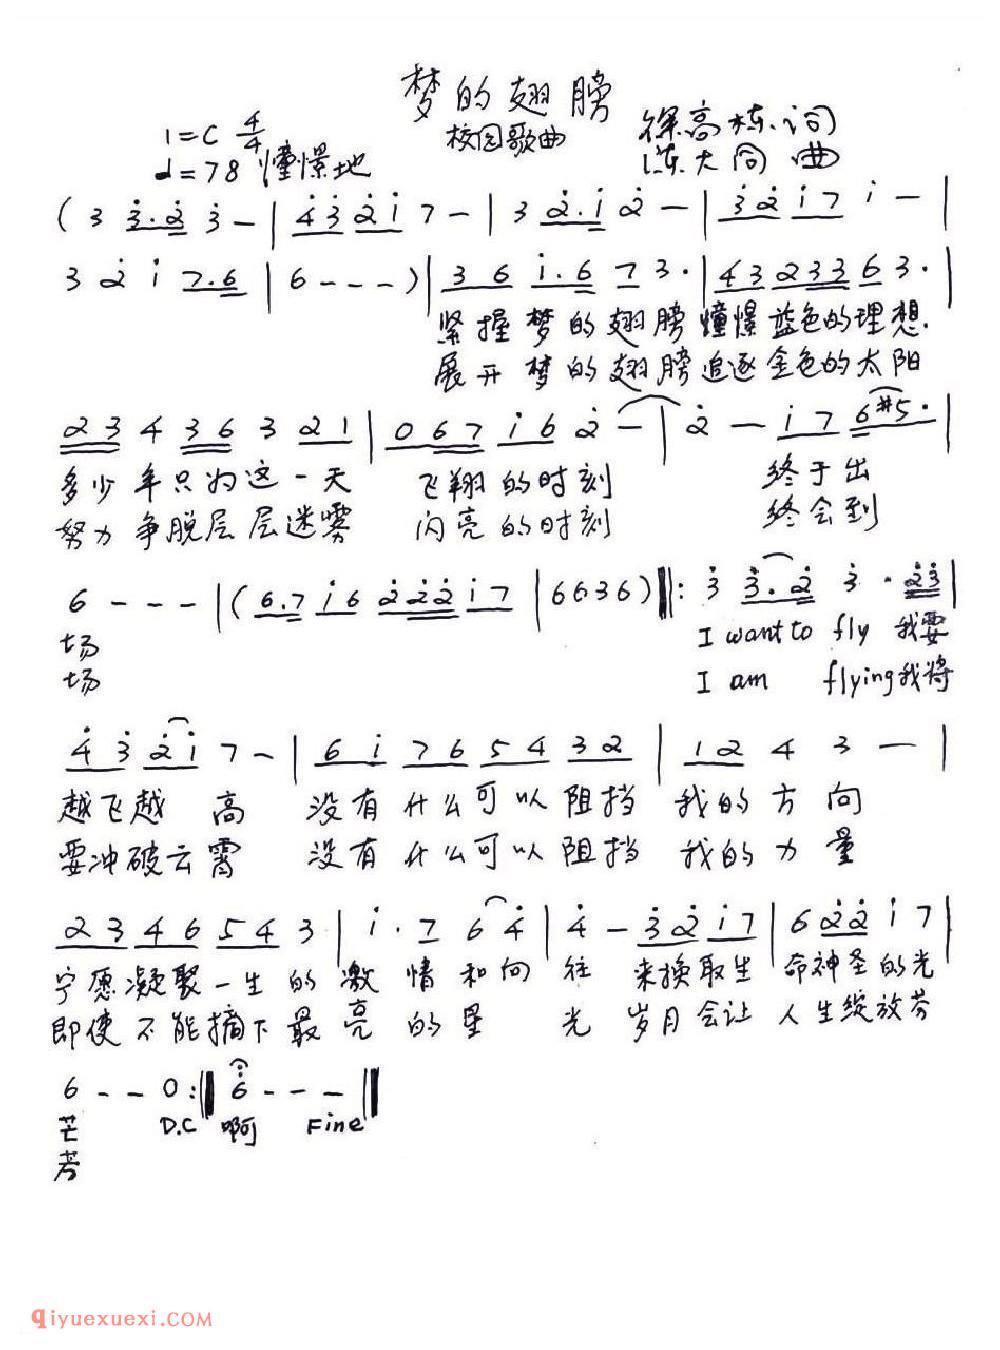 梦的翅膀
校园歌曲
1=C 4/4
♩=78 憧憬地
徐高栋 词
陈大同 曲
(3 3̇.2̇ 3̇ - | 4̇3̇ 2̇1̇ 7 - | 3 2̇.1̇ 2̇ - | 3̇2̇ 1̇7 1̇ - |
3 2̇ 1̇ 7.6 | 6 - - -) | 3 6 1̇.6 7 3. | 43 233 6 3. |
紧握梦的翅膀 憧憬蓝色的理想
展开梦的翅膀 追逐金色的太阳
23 4 36 3 21 | 067 1̇6 2̇ - | 2̇ - 1̇7 6#5. |
多少年只为这一天 飞翔的时刻 终于出
努力争脱层层迷雾 闪亮的时刻 终会到
6 - - - | (6.7 1̇6 2̇2̇2̇ 1̇7 | 6636) ‖: 3̇ 3̇.2̇ 3̇ . 2̇3̇ |
场 I want to fly 我要
场 I am flying 我将
4̇ 3̇ 2̇1̇ 7 - | 6 1̇ 76 54 32 | 12 4 3 - |
越飞越高 没有什么可以阻挡 我的方向
要冲破云霄 没有什么可以阻挡 我的力量
23 46 54 3 | 1̇. 7 6 4̇ | 4̇ - 3̇2̇ 1̇7 | 6 2̇2̇ 1̇ 7 |
宁愿凝聚一生的激情和向往 来换取生命神圣的光
即使不能摘下最亮的星光 岁月会让人生绽放芬
6 - - 0 :‖ 6̇ - - - ‖
芒 D.C 啊 Fine
芳
qiyuexuexi.COM